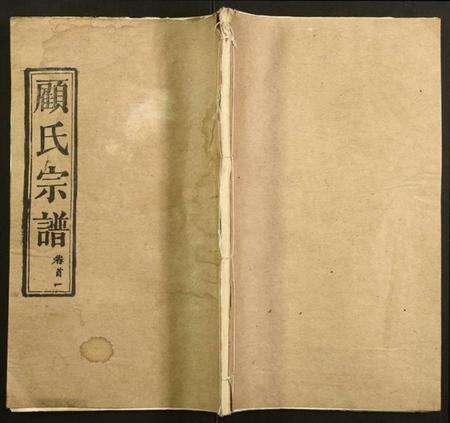 顧氏宗譜
卷首一